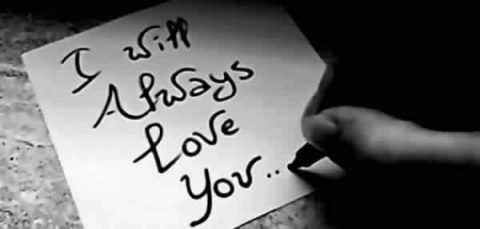 I will
Always
Love
You..